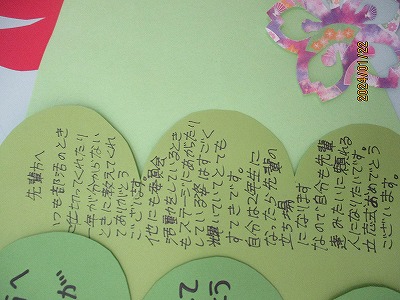 先輩方へ
いつも部活のとき
仕切ってくれたり
一年が分からない
ときに教えてくれ
てありがとう
ございます。
他にも委員会
活動をしているとき
もステージにあがったり
している姿はすごく
輝いていてとても
すてきです。
自分は2年生に
なったら先輩の
立ち場
になります
なので自分も先輩
達みたいに頼れる
人になりたいです。
立志式おめでとう
ございます。
2024/01/22